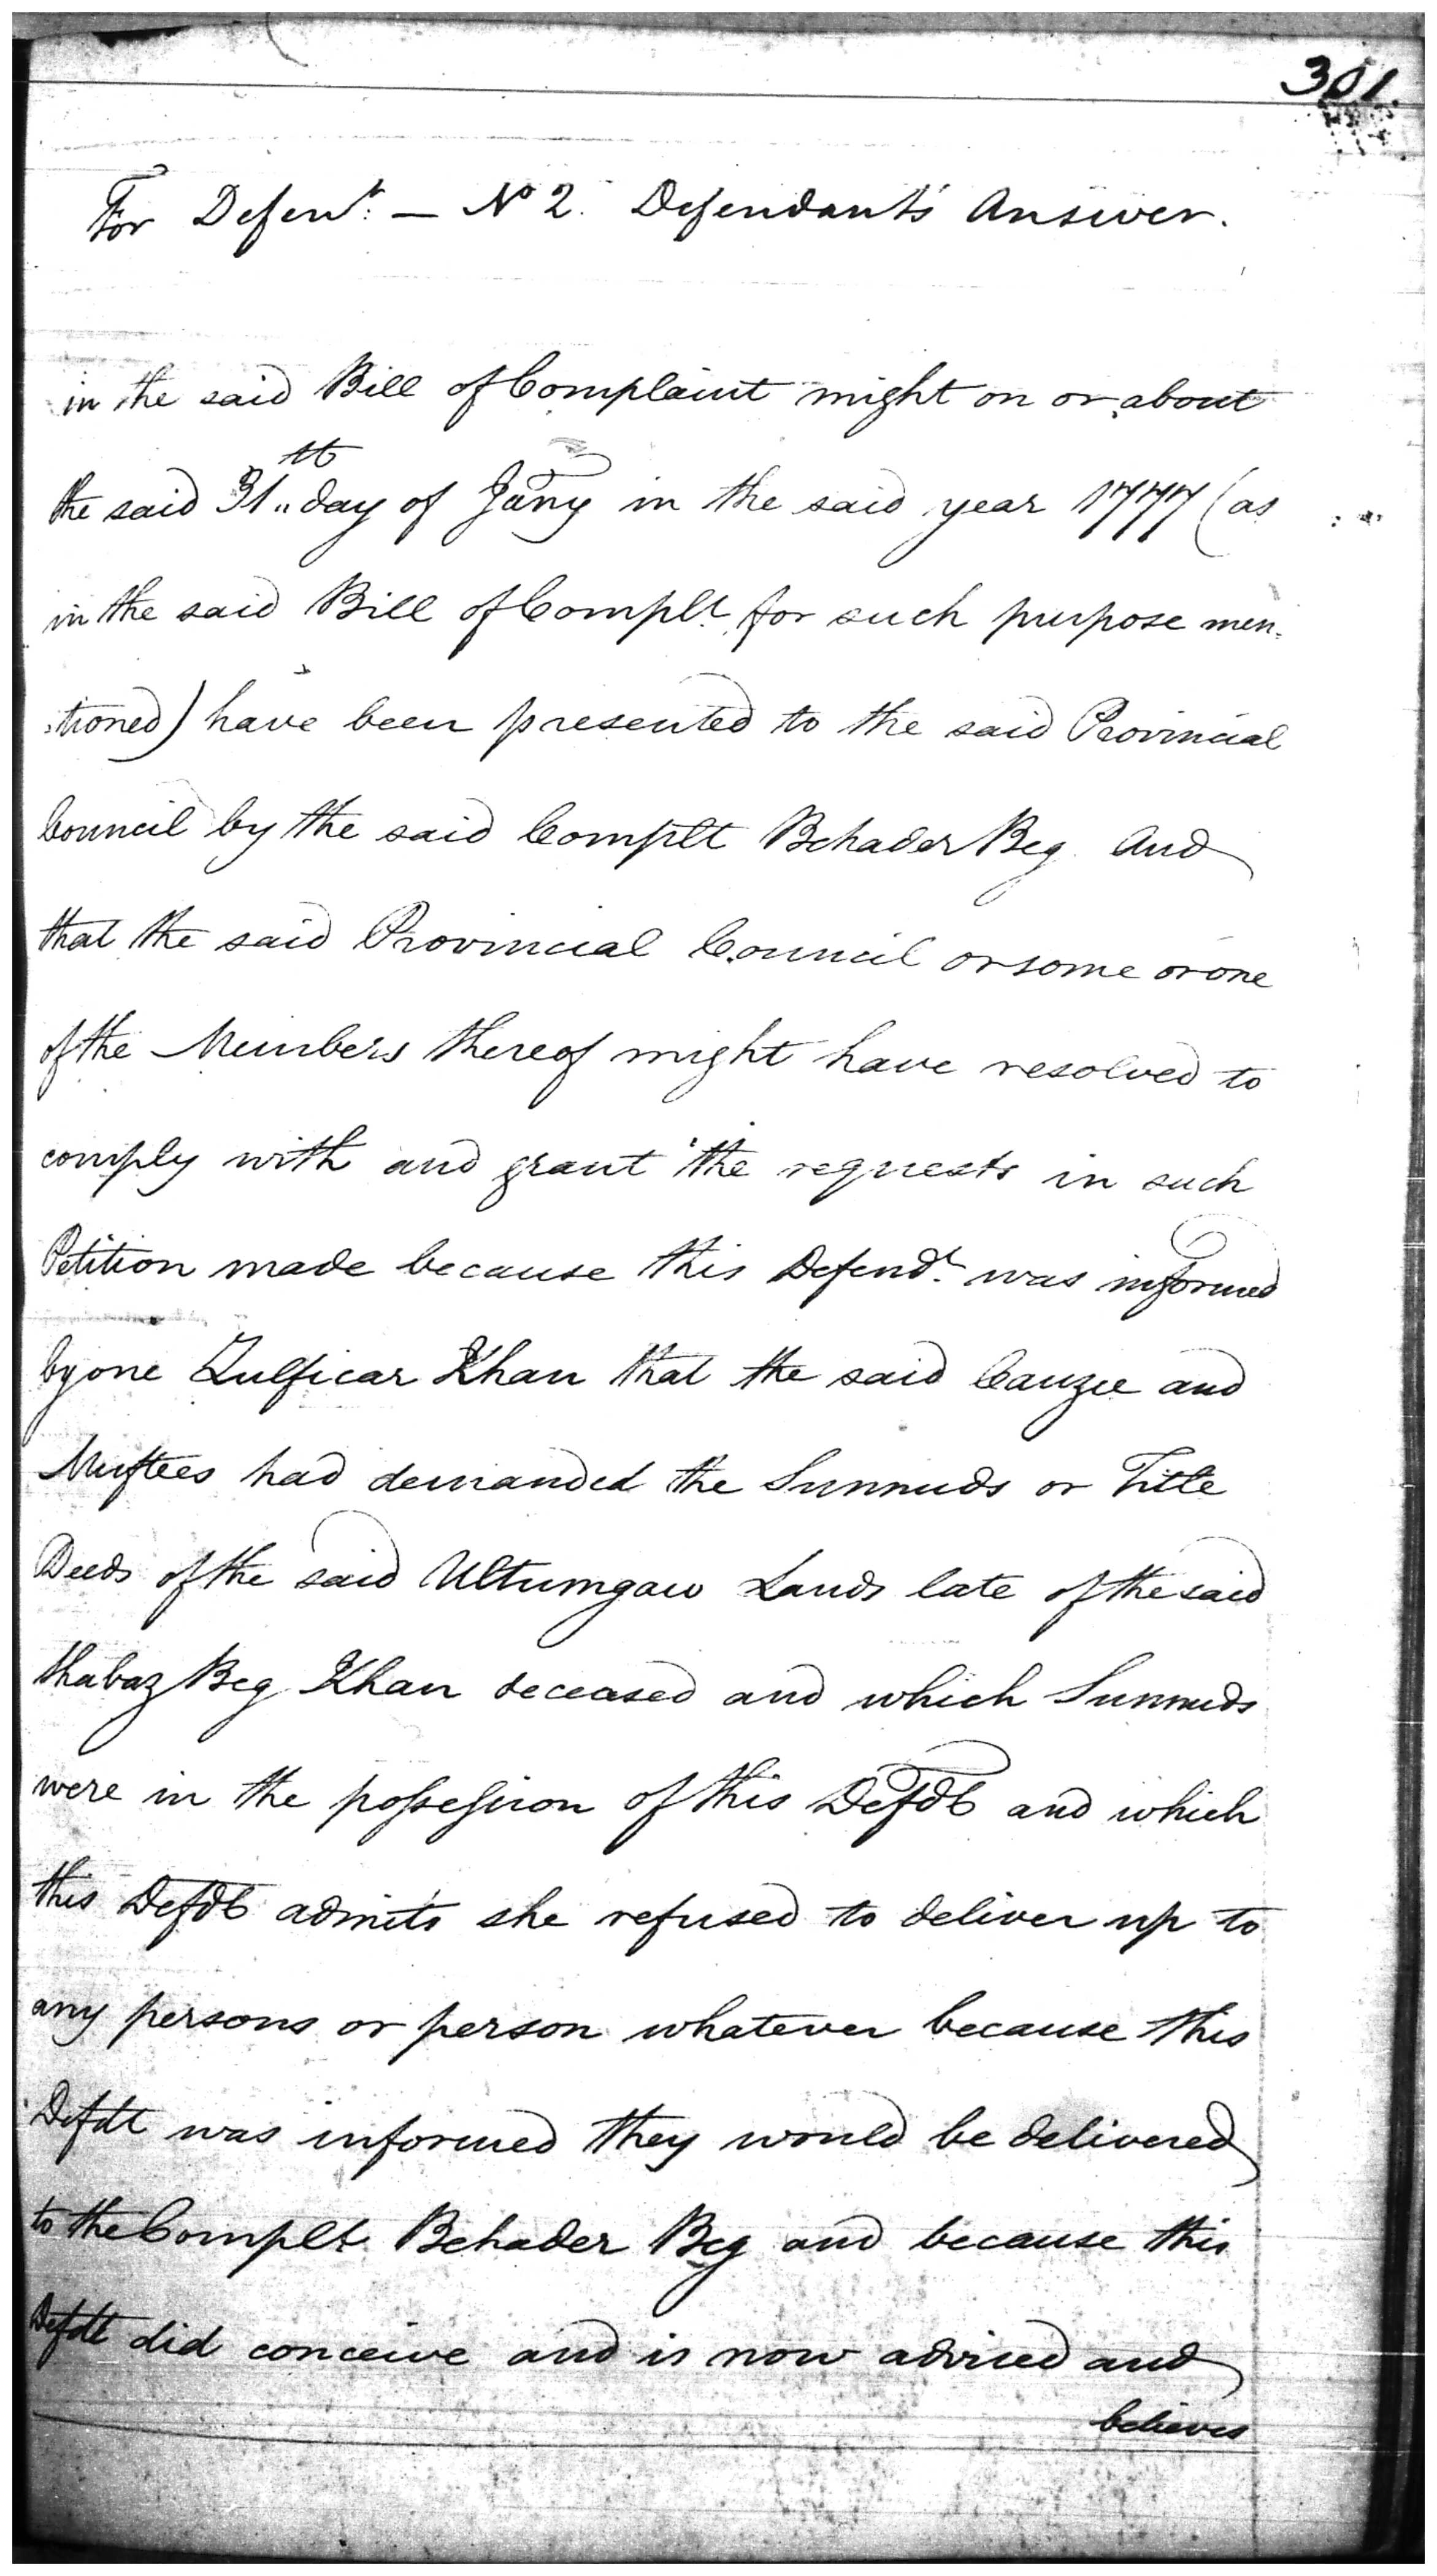 301
For Defent. — No 2. Defendant's Answer.
in the said Bill of Complaint might on or about
the said 31th day of Jany in the said year 1777 (as
in the said Bill of Complt. for such purpose men-
-tioned) have been presented to the said Provincial
Council by the said Complt Behader Beg. And
that the said Provincial Council or some or one
of the Members thereof might have resolved to
comply with and grant the requests in such
Petition made because this Defendt. was informed
by one Zulficar Khan that the said Cauzee and
Muftees had demanded the Sunnuds or Title
Deeds of the said Ultumgaw Lands late of the said
Shabaz Beg Khan deceased and which Sunnuds
were in the possession of this Defdt and which
this Defdt admits she refused to deliver up to
any persons or person whatever because this
Defdt was informed they would be delivered
to the Complt Behader Beg and because this
Defdt did conceive and is now advised and
believes